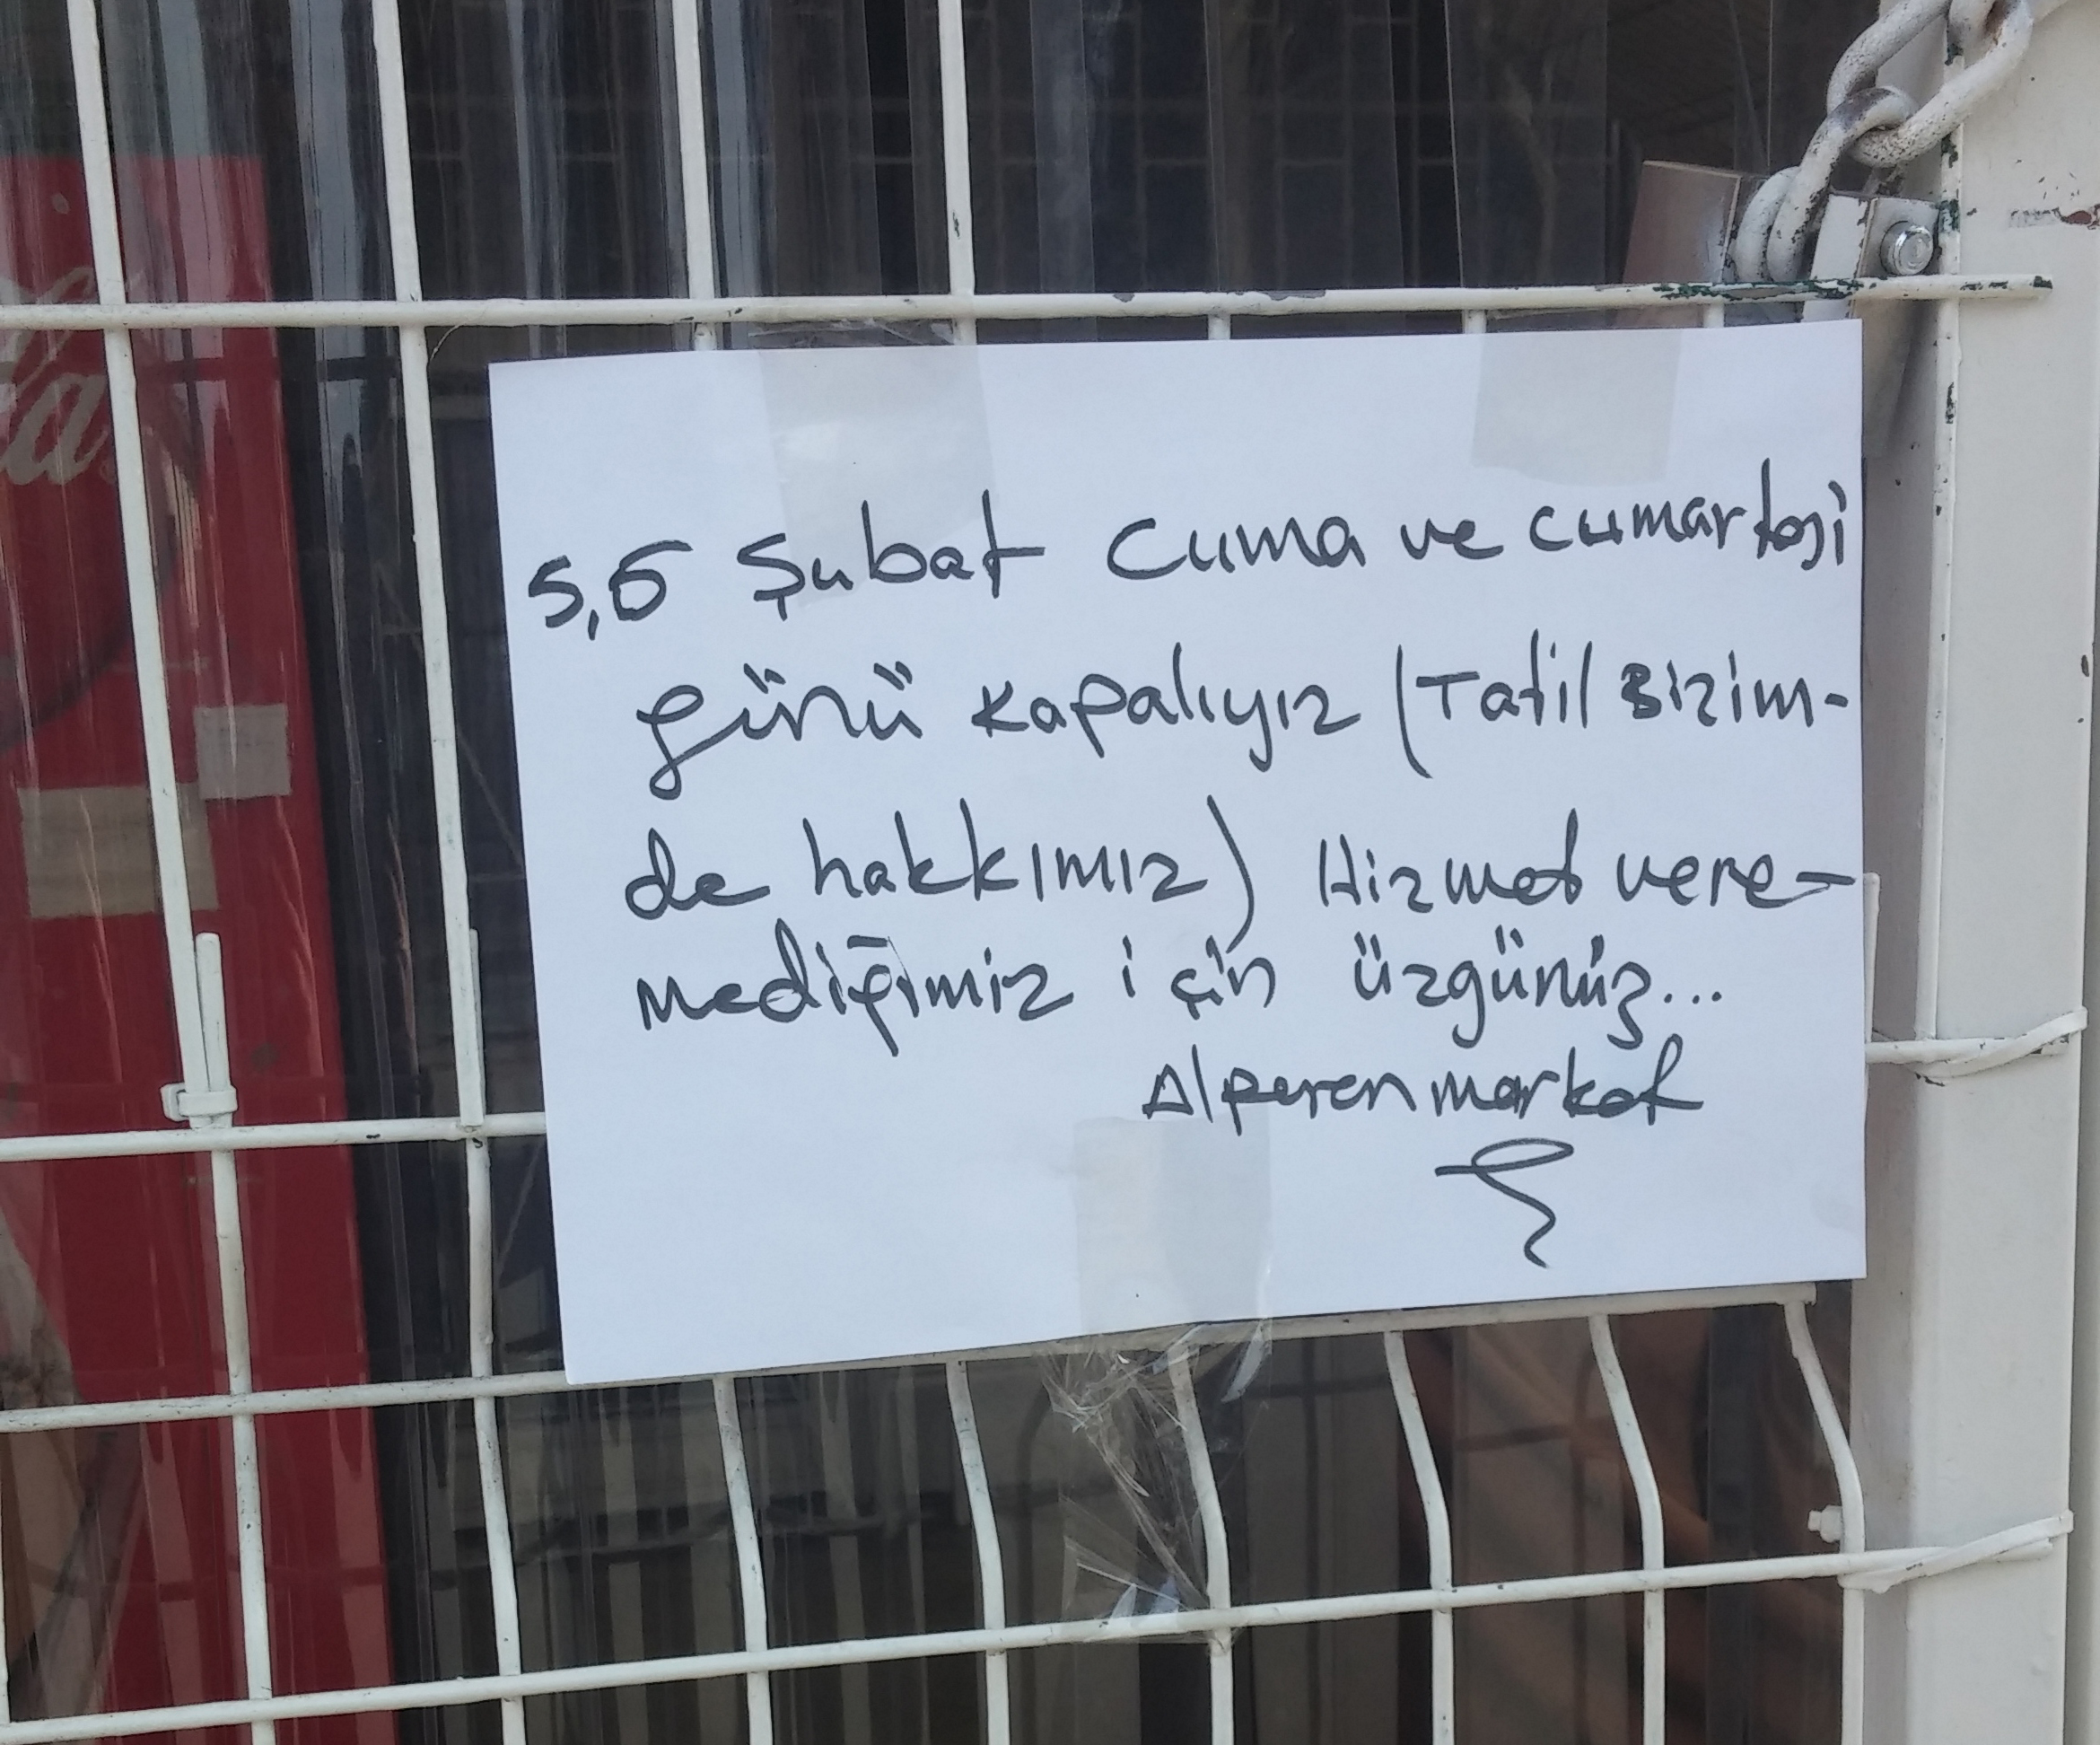 la
5,6 Şubat Cuma ve cumartesi
günü kapalıyız (Tatil Bizim-
de hakkımız) Hizmet vere-
mediğimiz için üzgünüz...
Alperen market